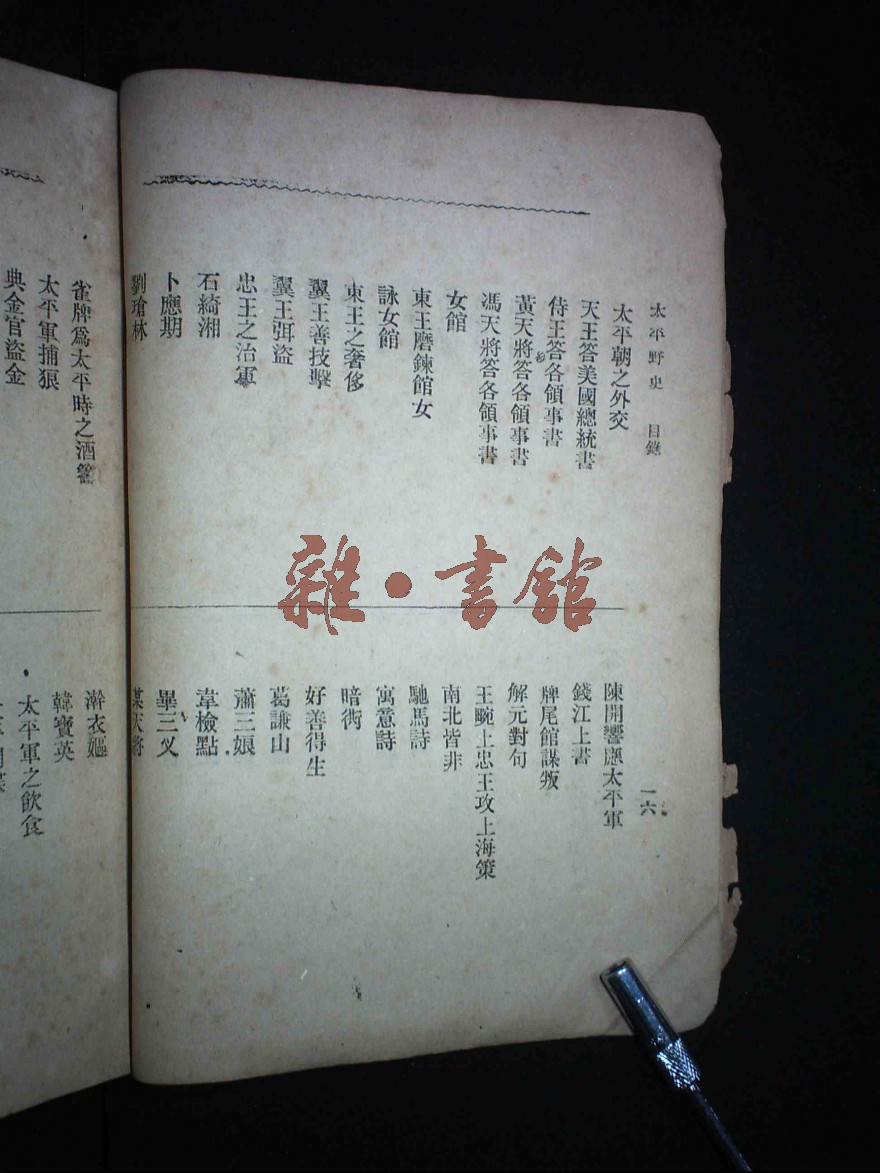 太平野史　目錄
一六
太平朝之外交
天王答美國總統書
侍王答各領事書
黃天將答各領事書
馮天將答各領事書
女館
東王磨鍊館女
詠女館
東王之奢侈
翼王善技擊
翼王弭盜
忠王之治軍
石綺湘
卜應期
劉瑲林
陳開響應太平軍
錢江上書
牌尾館謀叛
解元對句
王畹上忠王攻上海策
南北皆非
馳馬詩
寓意詩
暗銜
好善得生
葛謙山
蕭三娘
韋檢點
畢三乂
某天將
雀牌為太平時之酒籌
太平軍捕狼
典金官盜金
澣衣嫗
韓寶英
太平軍之飲食
雜·書館